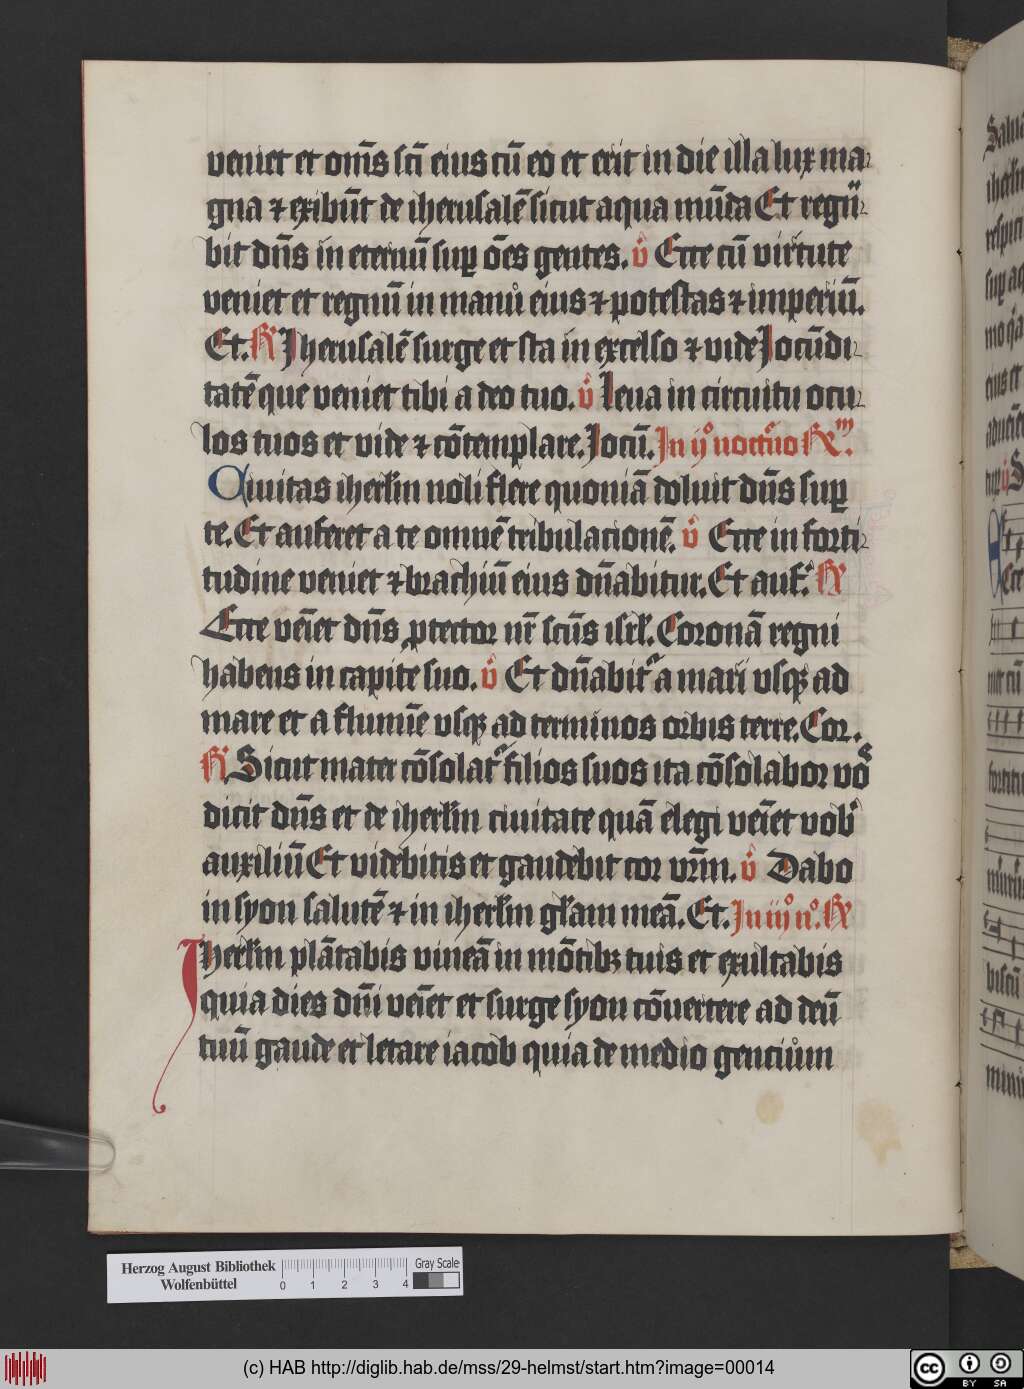 veniet et om̄s sc̄i eius cū eo et erit in die illa lux ma-
gna ⁊ exibūt de iherusalē sicut aqua mūda Et regn̄-
bit dn̄s in eternū suꝑ ōēs gentes. v̊ Ecce cū virtute
veniet et regnū in manu eius ⁊ potestas ⁊ imperiū.
Et. R̄ Iherusalē surge et sta in excelso ⁊ vide Iocūdi-
tatē que veniet tibi a deo tuo. v̊ leua in circuitu ocu-
los tuos et vide ⁊ cōtemplare. Iocū. In ijº noctͦno R̄m.
Ciuitas iherl̄m noli flere quoniā doluit dn̄s suꝑ
te. Et auferet a te omnē tribulacionē. v̊ Ecce in forti-
tudine veniet ⁊ brachiū eius dn̄abitur. Et auf. R̄
Ecce veīet dn̄s ꝓtector nr̄ sc̄us isrl̄. Coronā regni
habens in capite suo. v̊ Et dn̄abit͛ a mari vsqꝫ ad
mare et a flumīe vsqꝫ ad terminos orbis terre. Cor.
R̄ Sicut mater cōsolat͛ filios suos ita cōsolabor vōs
dicit dn̄s et de iherl̄m ciuitate quā elegi veīet vob̵
auxiliū Et videbitis et gaudebit cor vr̄m. v̊ Dabo
in syon salutē ⁊ in iherl̄m gl̄am meā. Et. In iijº nº. R̄
Iherl̄m plātabis vineā in mōtibꝫ tuis et exultabis
quia dies dn̄i veīet et surge syon cōuertere ad deū
tuū gaude et letare iacob quia de medio gencium
Herzog August Bibliothek
Wolfenbüttel
0 1 2 3 4
Gray Scale
(c) HAB http://diglib.hab.de/mss/29-helmst/start.htm?image=00014
cc BY SA